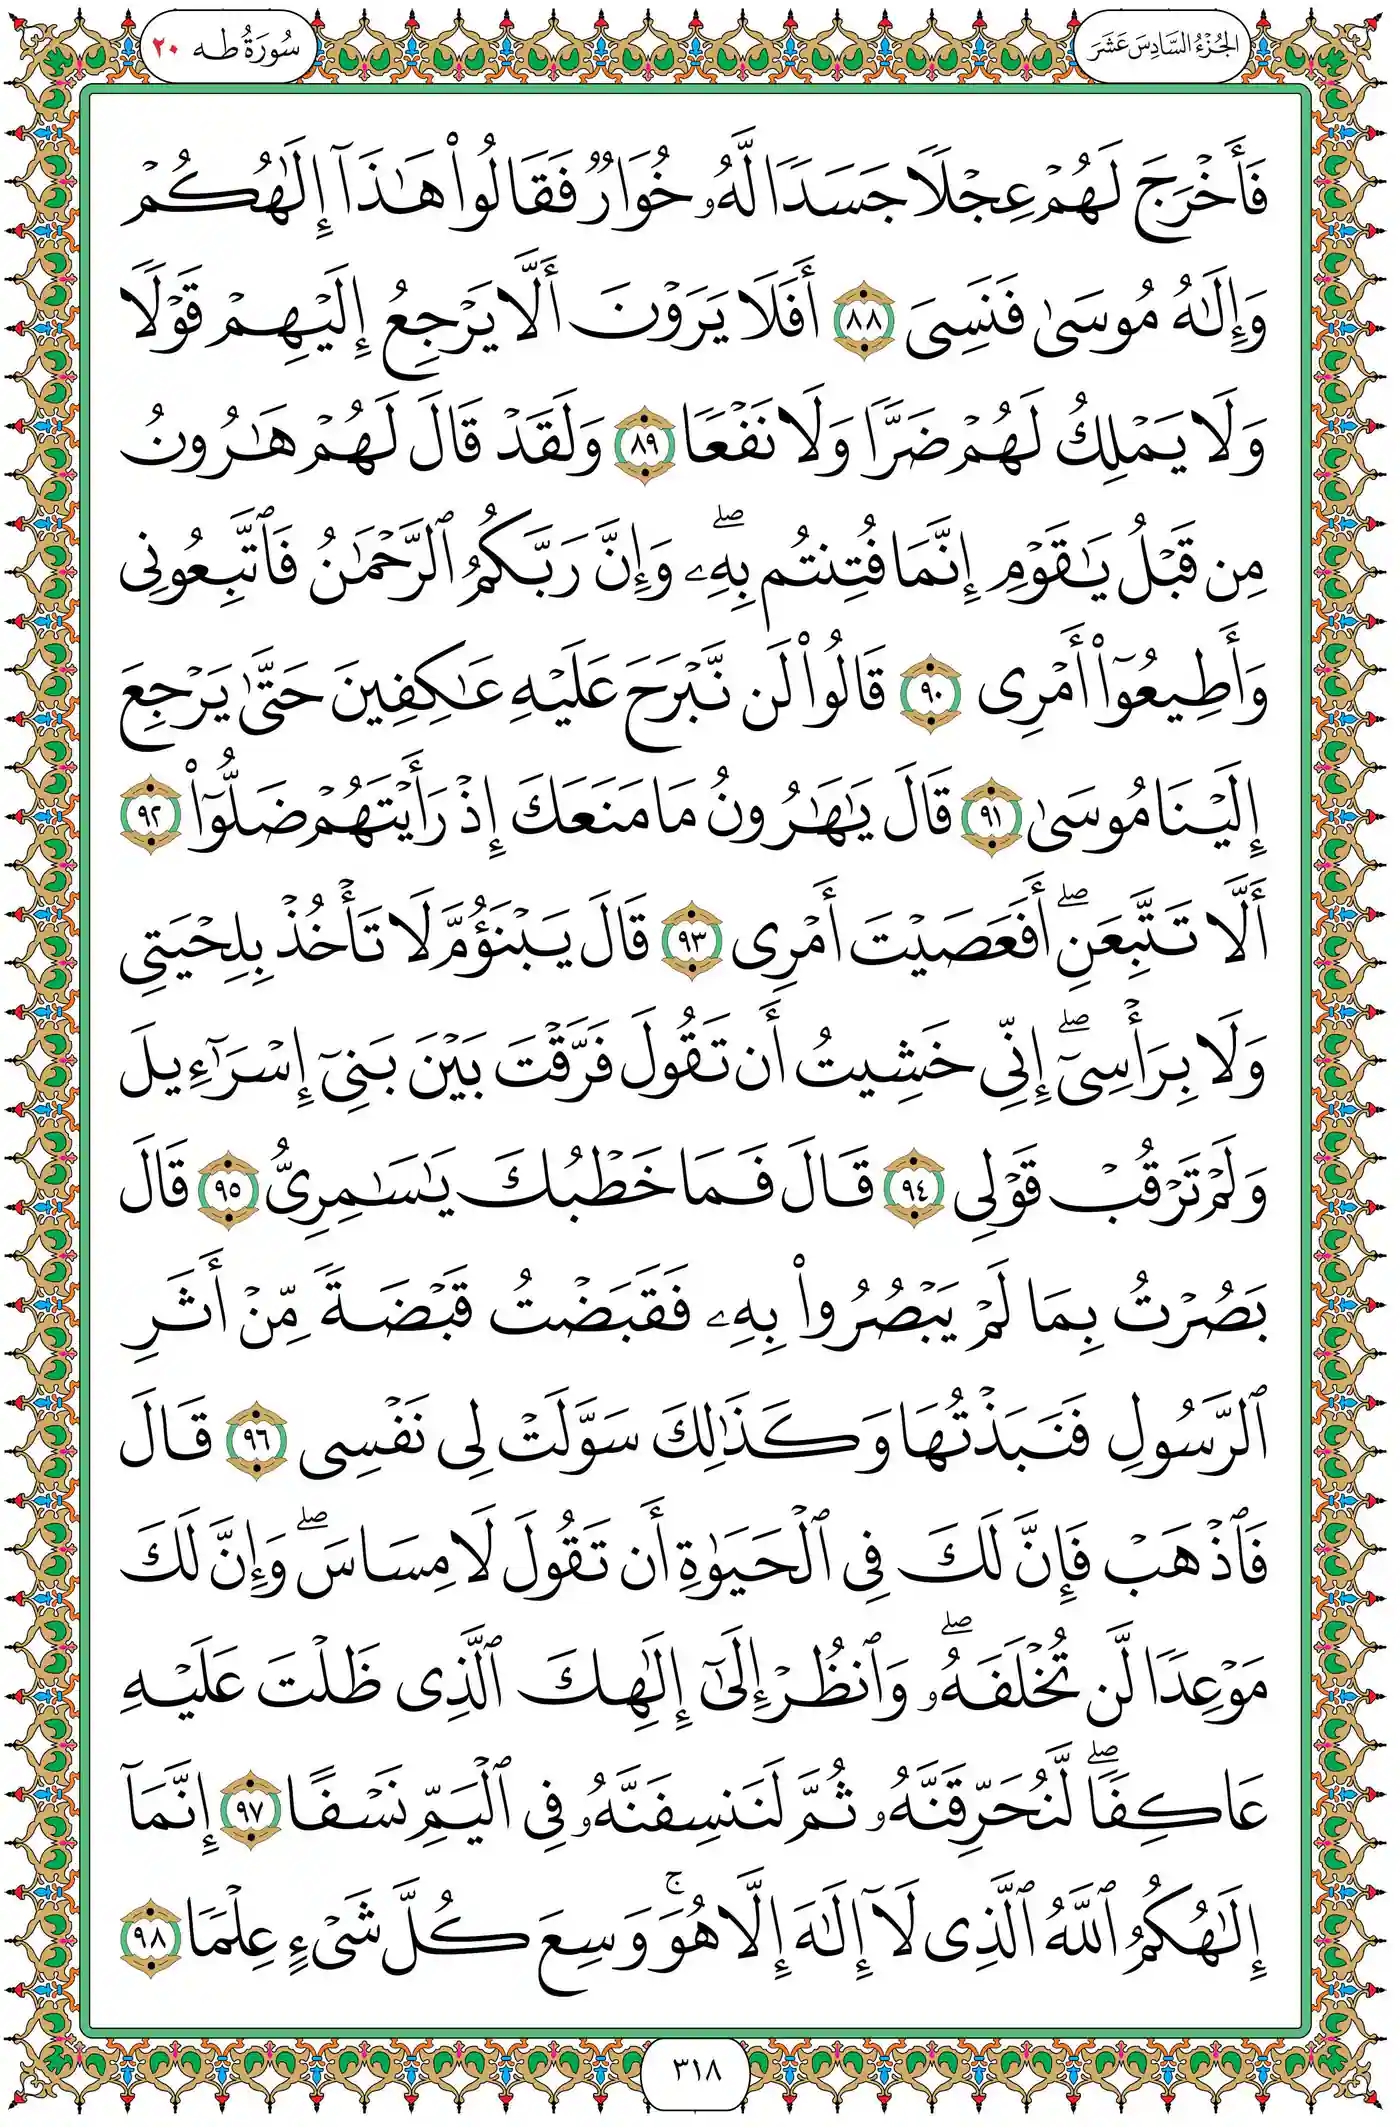 الجُزْءُ السَّادِسَ عَشَرَ
سُورَةُ طه ٢٠
فَأَخْرَجَ لَهُمْ عِجْلًا جَسَدًا لَّهُۥ خُوَارٌ فَقَالُوا۟ هَٰذَآ إِلَٰهُكُمْ
وَإِلَٰهُ مُوسَىٰ فَنَسِىَ ٨٨ أَفَلَا يَرَوْنَ أَلَّا يَرْجِعُ إِلَيْهِمْ قَوْلًا
وَلَا يَمْلِكُ لَهُمْ ضَرًّا وَلَا نَفْعًا ٨٩ وَلَقَدْ قَالَ لَهُمْ هَٰرُونُ
مِن قَبْلُ يَٰقَوْمِ إِنَّمَا فُتِنتُم بِهِۦ ۖ وَإِنَّ رَبَّكُمُ ٱلرَّحْمَٰنُ فَٱتَّبِعُونِى
وَأَطِيعُوٓا۟ أَمْرِى ٩٠ قَالُوا۟ لَن نَّبْرَحَ عَلَيْهِ عَٰكِفِينَ حَتَّىٰ يَرْجِعَ
إِلَيْنَا مُوسَىٰ ٩١ قَالَ يَٰهَٰرُونُ مَا مَنَعَكَ إِذْ رَأَيْتَهُمْ ضَلُّوٓا۟ ٩٢
أَلَّا تَتَّبِعَنِ ۖ أَفَعَصَيْتَ أَمْرِى ٩٣ قَالَ يَبْنَؤُمَّ لَا تَأْخُذْ بِلِحْيَتِى
وَلَا بِرَأْسِىٓ ۖ إِنِّى خَشِيتُ أَن تَقُولَ فَرَّقْتَ بَيْنَ بَنِىٓ إِسْرَٰٓءِيلَ
وَلَمْ تَرْقُبْ قَوْلِى ٩٤ قَالَ فَمَا خَطْبُكَ يَٰسَٰمِرِىُّ ٩٥ قَالَ
بَصُرْتُ بِمَا لَمْ يَبْصُرُوا۟ بِهِۦ فَقَبَضْتُ قَبْضَةً مِّنْ أَثَرِ
ٱلرَّسُولِ فَنَبَذْتُهَا وَكَذَٰلِكَ سَوَّلَتْ لِى نَفْسِى ٩٦ قَالَ
فَٱذْهَبْ فَإِنَّ لَكَ فِى ٱلْحَيَوٰةِ أَن تَقُولَ لَا مِسَاسَ ۖ وَإِنَّ لَكَ
مَوْعِدًا لَّن تُخْلَفَهُۥ ۖ وَٱنظُرْ إِلَىٰٓ إِلَٰهِكَ ٱلَّذِى ظَلْتَ عَلَيْهِ
عَاكِفًا ۖ لَّنُحَرِّقَنَّهُۥ ثُمَّ لَنَنسِفَنَّهُۥ فِى ٱلْيَمِّ نَسْفًا ٩٧ إِنَّمَآ
إِلَٰهُكُمُ ٱللَّهُ ٱلَّذِى لَآ إِلَٰهَ إِلَّا هُوَ ۚ وَسِعَ كُلَّ شَىْءٍ عِلْمًا ٩٨
٣١٨